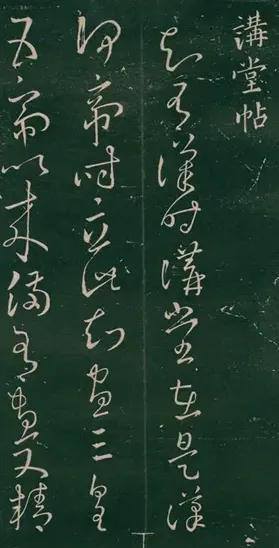 講堂帖
知有漢時講堂在是漢
何帝時立此知畫三皇
五帝以來備有畫又精